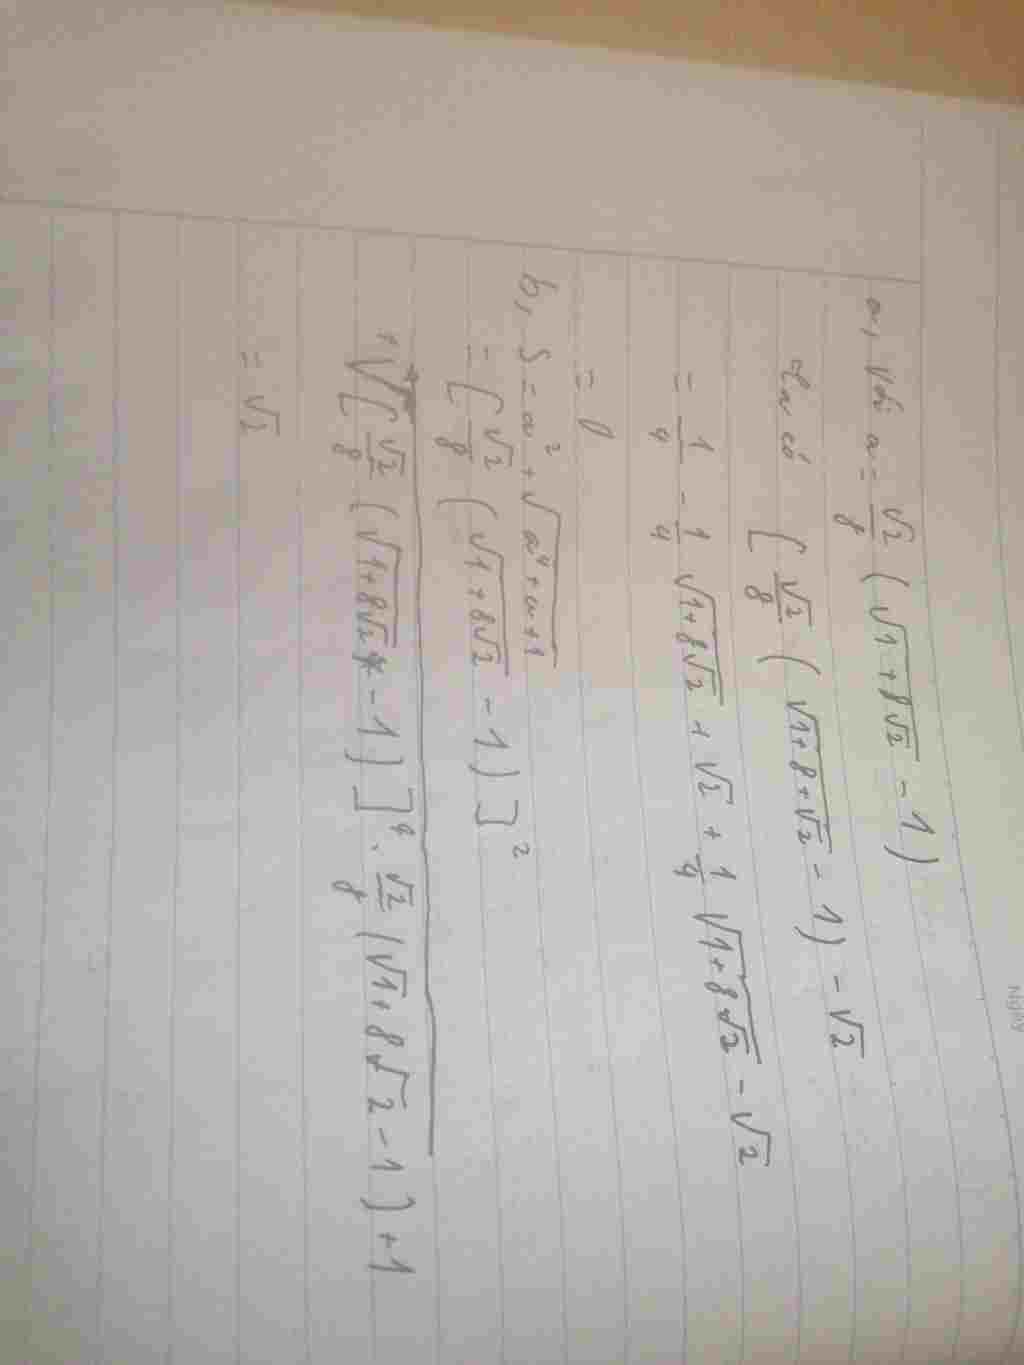 a, Với a = √2/8 (√(1+8√2) - 1)
Ta có [√2/8 (√(1+8+√2) - 1) - √2
= 1/4 - 1/4 √(1+8√2) + √2 + 1/4 √(1+8√2) - √2
= 0
b, S = a² + √(a⁴+a+1)
= [√2/8 (√(1+8√2) - 1)]²
+ √([√2/8 (√(1+8√2) - 1)]⁴ . √2/8 (√1+8√2 - 1) + 1
= √2
Ngày